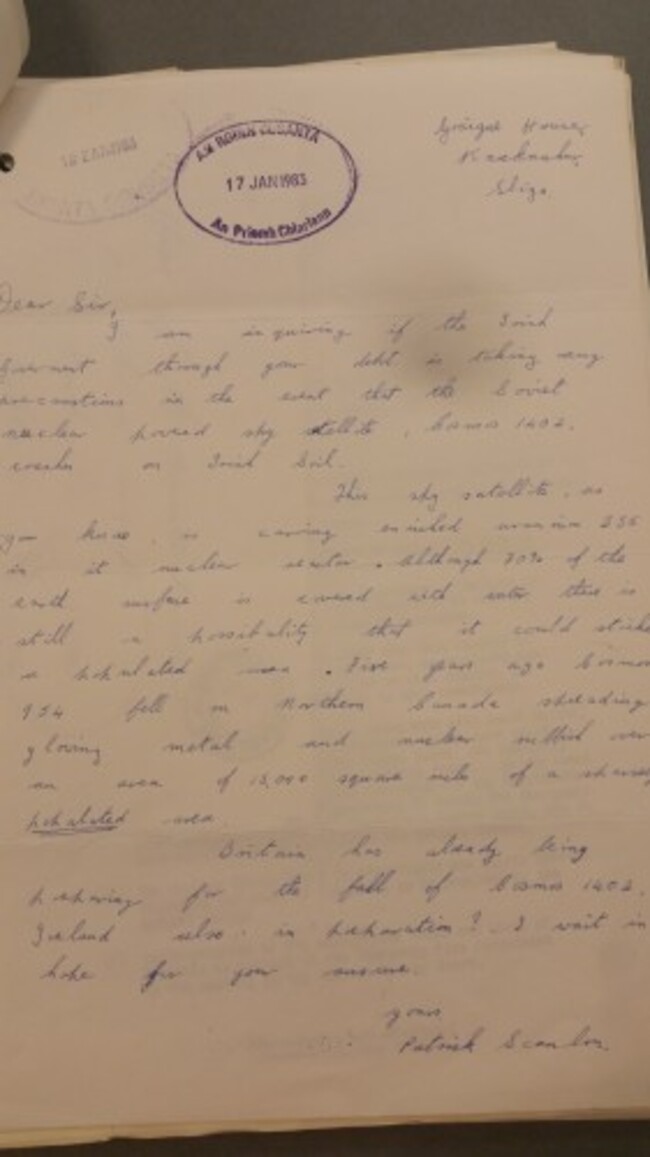 17 JAN 1983
Sligo.
Dear Sir,
I am inquiring if the Irish
through your dept is taking any
in the event that the Soviet
nuclear powred sky stellite, Cosmos 1402,
on Irish Soil.
This sky satellite, as
you know, is carring eniched uranium 235
in it nuclear reactor. Although 70% of the
earth surface is covered with water there is
still a possibality that it could strike
a populated area. Five years ago Cosmos
954 fell in Northern Canada spreading
gloving metal and nuclear rubbish over
an area of 15,000 square miles of a
populated area.
Britain has already being
preparing for the fall of Cosmos 1402.
Ireland also in preparation? I wait in
hope for your answere.
yours
Patrick Scanlon.